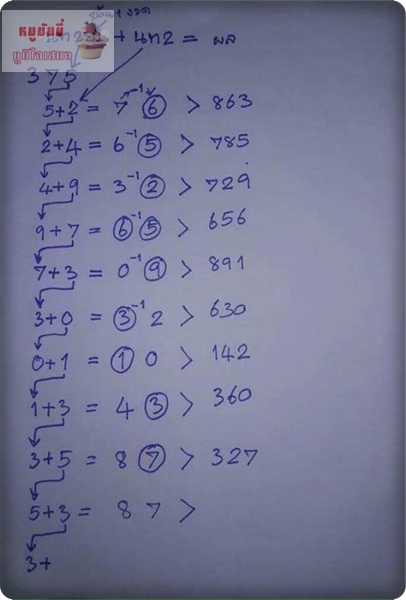 ย้อน 1 งวด
หมูบัมมี่
ภูมิใจเสนอ
+ นท2 = ผล
3 7 5
5+2 = 7 -1 6 > 863
2+4 = 6 -1 5 > 785
4+9 = 3 -1 2 > 729
9+7 = 6 -1 5 > 656
7+3 = 0 -1 9 > 891
3+0 = 3 -1 2 > 630
0+1 = 1 0 > 142
1+3 = 4 3 > 360
3+5 = 8 7 > 327
5+3 = 8 7 >
3+